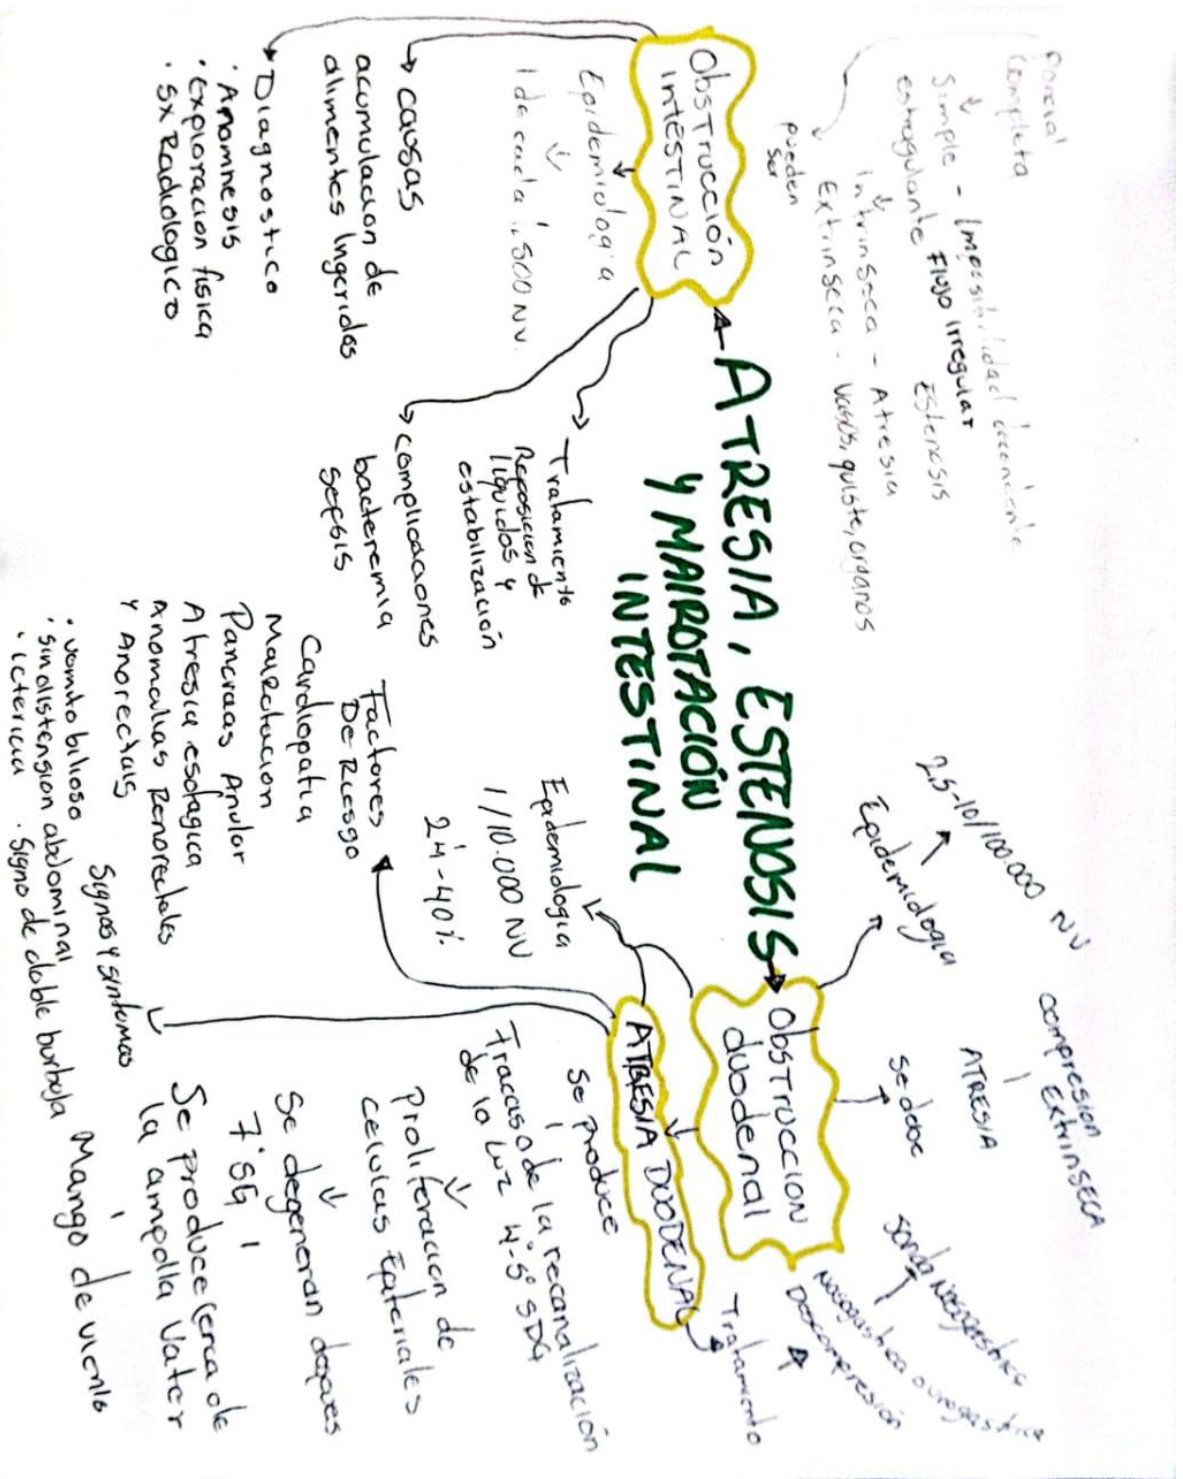 ATRESIA, ESTENOSIS
Y MAIROTACIÓN
INTESTINAL
Obstrucción
INTESTINAL
Parcial
Completa
Simple - Imposibilidad
estragulante Flujo irregular
Intrinseca - Atresia
Estenosis
Extrinseca - vasos, quiste, organos
pueden
ser
Epidemiologia
1 de cada 1.500 NV.
causas
acumulacion de
alimentes Ingeridos
Diagnostico
· Anamnesis
· exploracion fisica
· sx Radiologico
Tratamiento
Reposicion de
liquidos y
estabilización
complicaciones
bacteremia
sepsis
Obstruccion
duodenal
Epidemiologia
2,5-10/100.000 NV
se debe
ATRESIA
compresion
Extrinseca
Tratamiento
Descompresión
Nasogastrica o urogastrica
sonda Nasogastrica
ATRESIA DUODENAL
Epidemiologia
1/10.000 NV
24-40%
Factores
De Riesgo
Cardiopatia
Malrotacion
Pancraas Anular
Atresia esofagica
Anomalias Renorectales
y Anorectals
Signos y sintomas
· vomito bilioso
· sin distension abdominal
· ictericia · signo de doble burbuja
se produce
Fracaso de la recanalización
de la luz 4°-5° SDG
Proliferacion de
celulas Epiteriales
Se degeneran despues
7° SG
Se produce cerca de
la ampolla Vater
Mango de viento